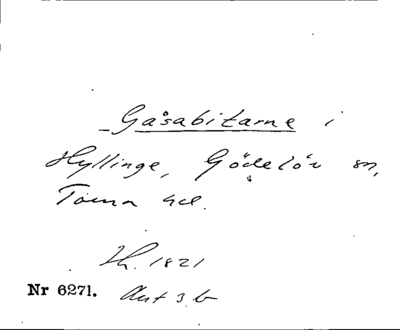 Gåsabitarne i
Hyllinge, Gödelöv sn,
Torna hd.
Th. 1821
Nr 6271. Akt 3 b